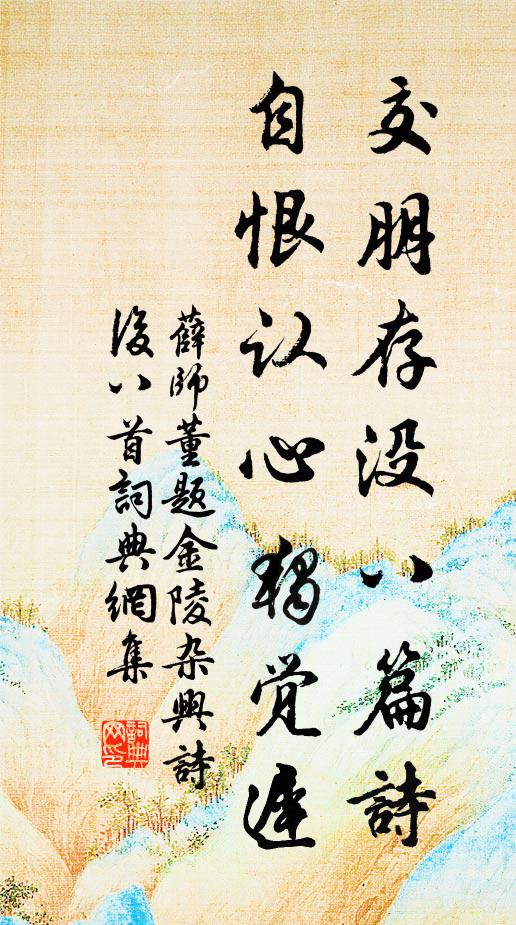 交朋存没八篇詩
自恨认心独觉遲
薛師董题金陵杂興詩
後八首詞典網集
詞典
网印